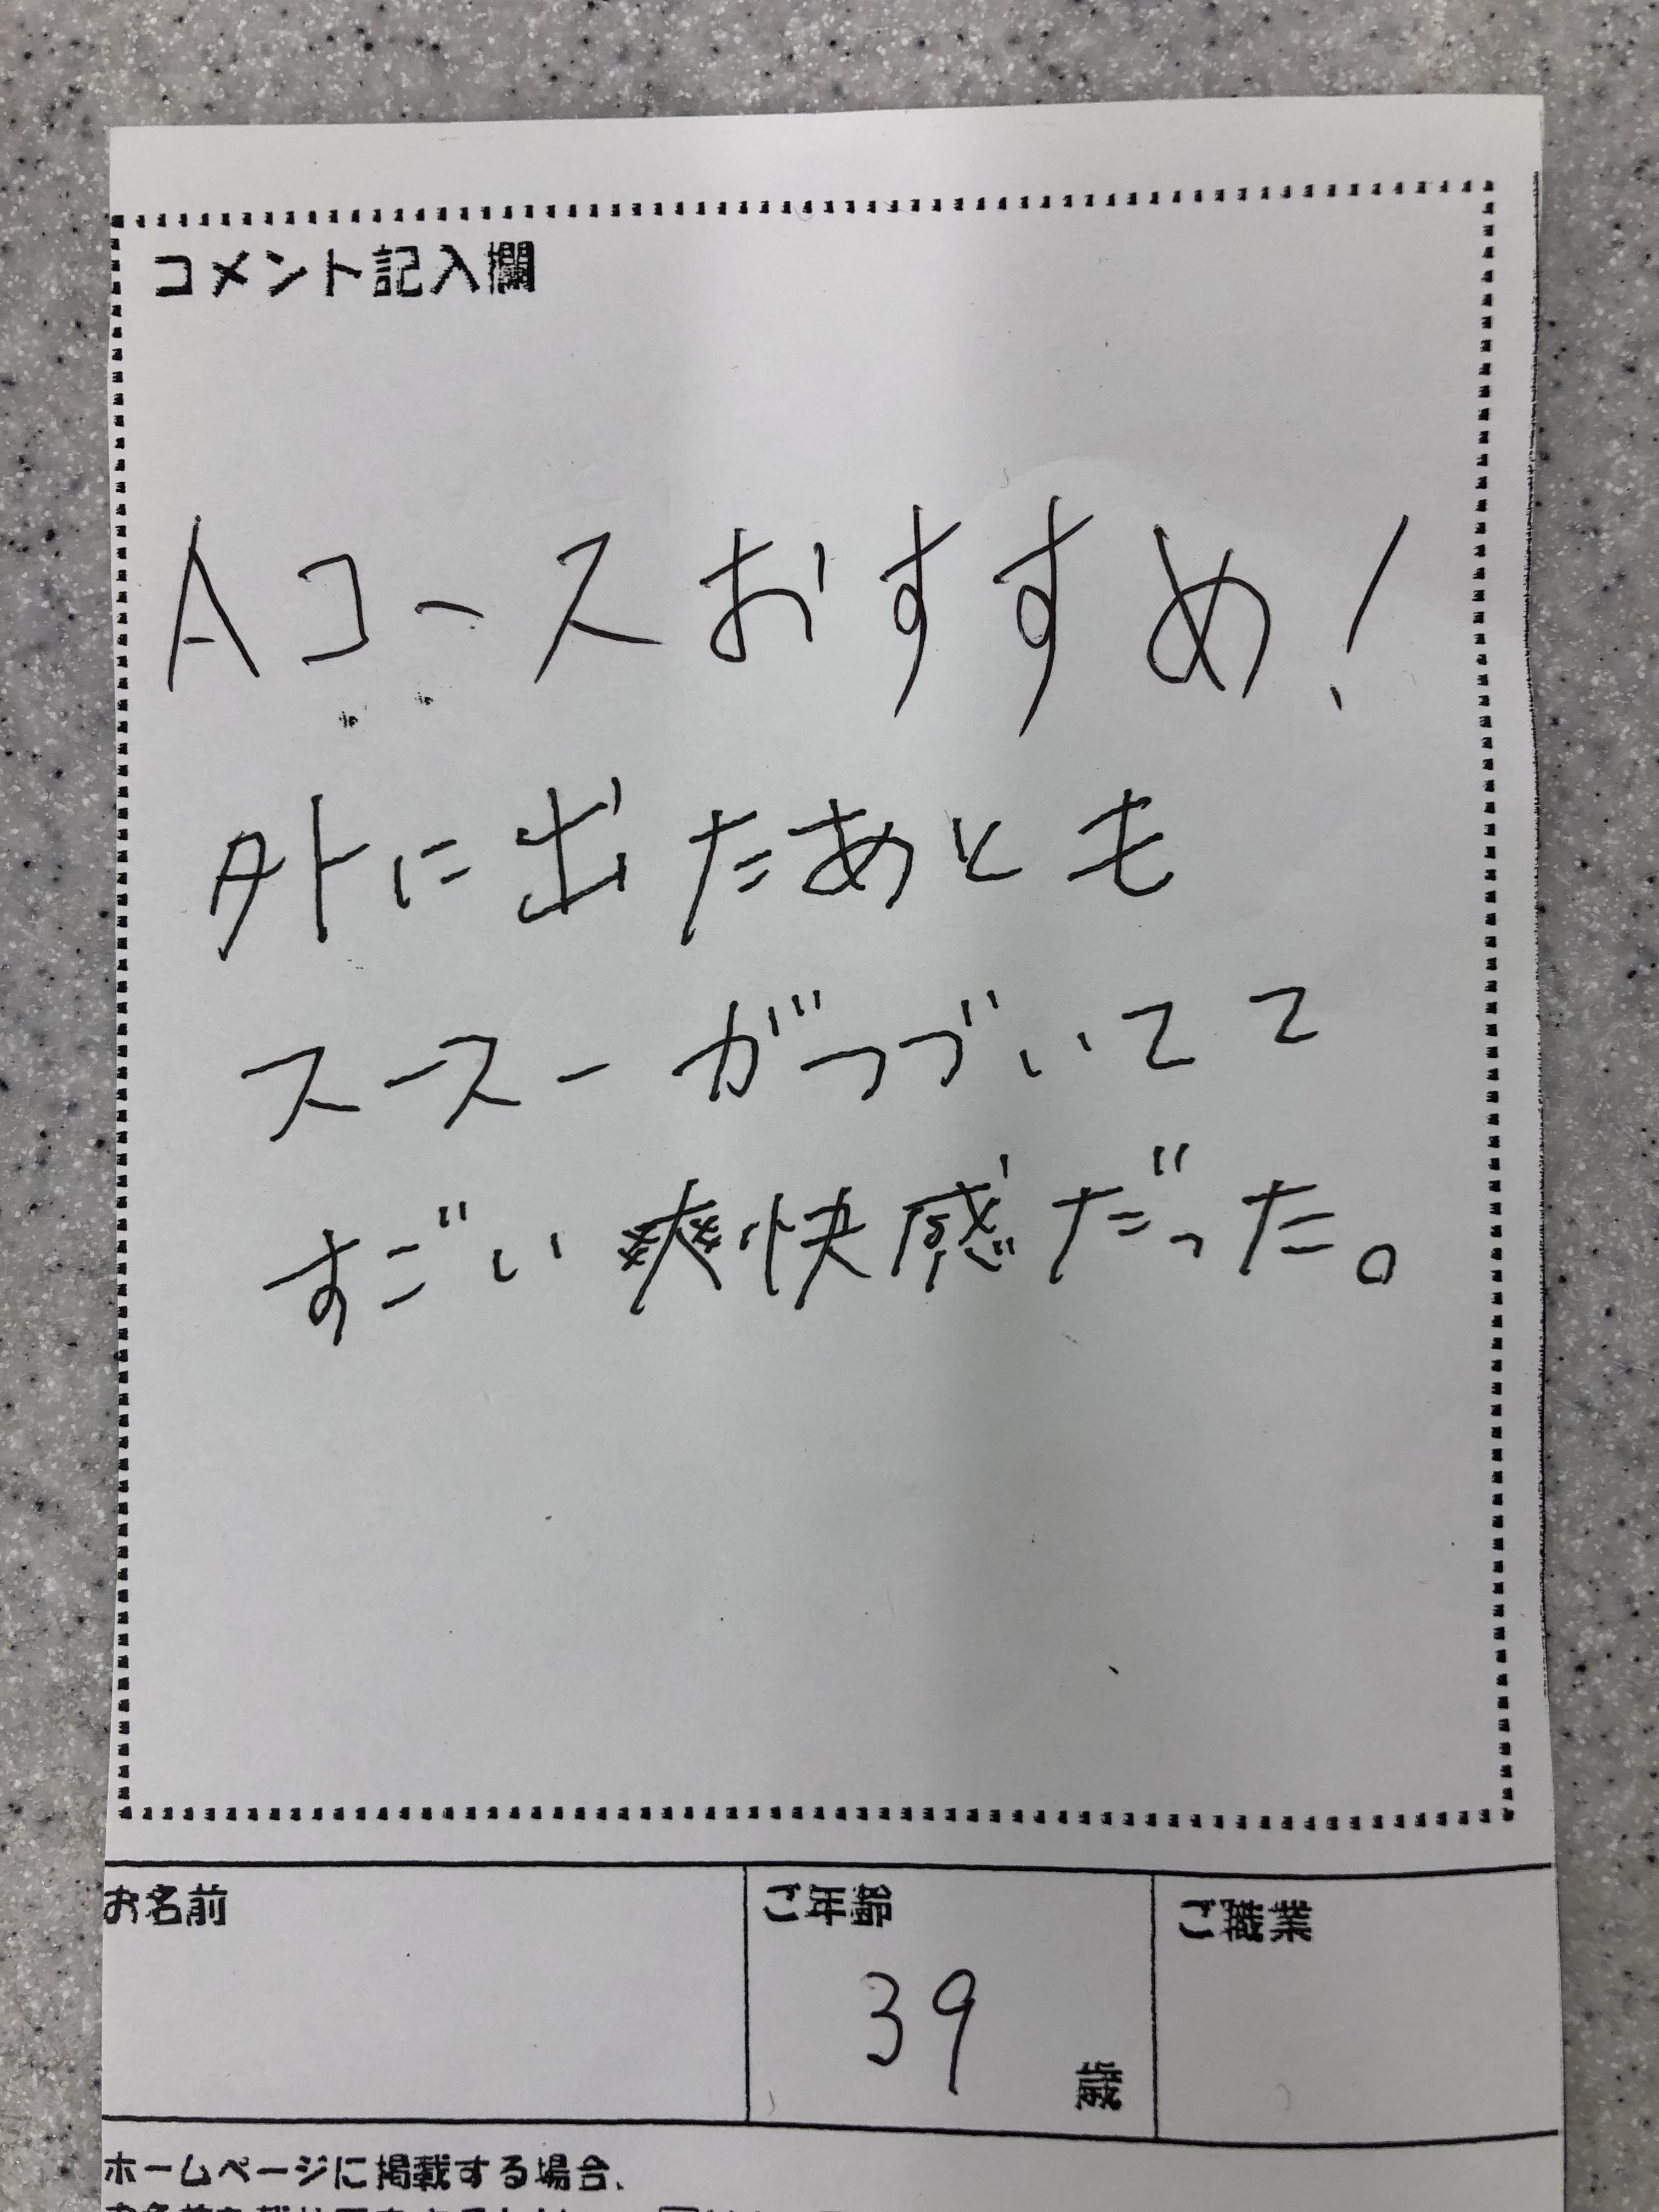 コメント記入欄
Aコースおすすめ!
外に出たあとも
スースーがつづいてて
すごい爽快感だった。
お名前
ご年齢
ご職業
39
歳
ホームページに掲載する場合、